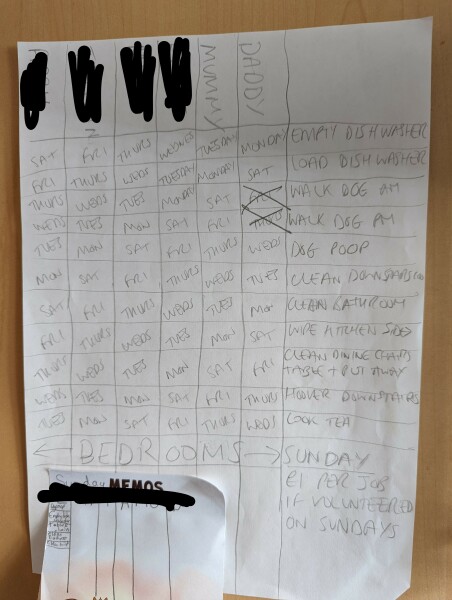 MUMMY DADDY
SAT FRI THURS WEDNES TUESDAY MONDAY EMPTY DISHWASHER
FRI THURS WEDS TUESDAY MONDAY SAT LOAD DISHWASHER
THURS WEDS TUES MON SAT WALK DOG AM
WEDS TUES MON SAT FRI THURS WALK DOG PM
TUES MON SAT FRI THURS WEDS DOG POOP
MON SAT FRI THURS WEDS TUES CLEAN DOWNSTAIRS
SAT FRI THURS WEDS TUES MON CLEAN BATHROOM
FRI THURS WEDS TUES MON SAT WIPE KITCHEN SIDES
THURS WEDS TUES MON SAT FRI CLEAN DINING CHAIRS
TABLE + PUT AWAY
WEDS TUES MON SAT FRI THURS HOOVER DOWNSTAIRS
TUES MON SAT FRI THURS WEDS COOK TEA
← BEDROOMS → SUNDAY
£1 PER JOB
IF VOLUNTEERED
ON SUNDAYS
Sunday MEMOS